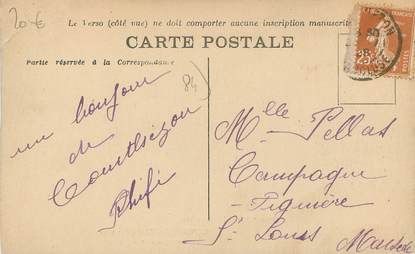 20 €
Le Verso (côté vue) ne doit comporter aucune inscription manuscrite
CARTE POSTALE
Partie réservée à la Correspondance
84
un bonjour
de
Courthézon
Fifi
Mlle Pellas
Campagne
Figuière
St Louis
Marseille
25c